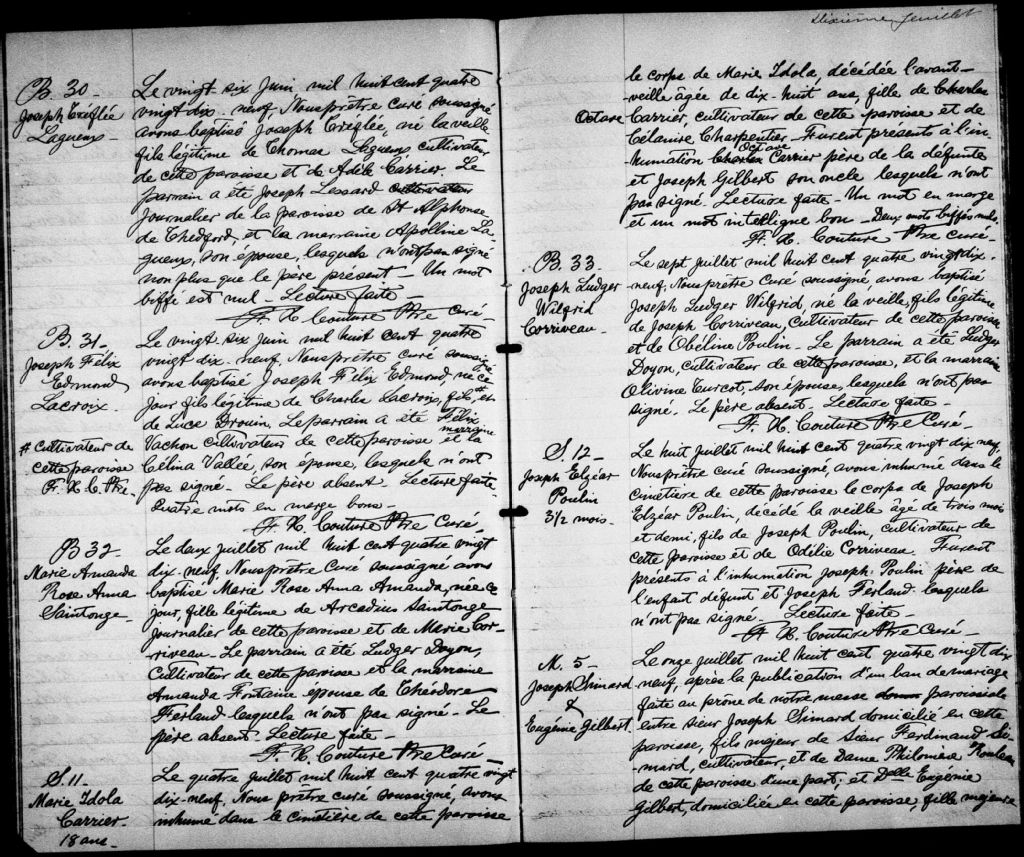 B. 30 -
Joseph Tréfflé
Lagueux -
Le vingt six Juin mil huit cent quatre
vingt dix - neuf, Nous prêtre Curé soussigné
avons baptisé Joseph Tréfflée, né la veille
fils légitime de Thomas Lagueux cultivateur
de cette paroisse et de Adèle Carrier. Le
parrain a été Joseph Lessard cultivateur
journalier de la paroisse de St Alphonse
de Thedford, et la marraine Apolline La-
gueux, son épouse, lesquels n'ont pas signé
non plus que le père présent - Un mot
biffé est nul - Lecture faite
F. X. Couture Ptre Curé -
B. 31 -
Joseph Félix
Edmond
Lacroix.
# Cultivateur de
cette paroisse
F. X. C. Ptre.
Le vingt six Juin mil huit cent quatre
vingt dix - neuf. Nous prêtre curé soussigné
avons baptisé Joseph Félix Edmond, né ce
jour fils légitime de Charles Lacroix, # et
de Luce Drouin. Le parrain a été Félix
Vachon cultivateur de cette paroisse et la marraine
Célina Vallée, son épouse, lesquels n'ont
pas signé. Le père absent Lecture faite
Quatre mots en marge bons -
F. X. Couture Ptre Curé.
B 32 -
Marie Amanda
Rose Anna
Saintonge -
Le deux juillet mil huit cent quatre vingt
dix - neuf. Nous prêtre Curé soussigné avons
baptisé Marie Rose Anna Amanda, née ce
jour, fille légitime de Arcadius Saintonge
journalier de cette paroisse et de Marie Cor-
riveau - Le parrain a été Ludger Doyon,
Cultivateur de cette paroisse et la marraine
Amanda Fontaine épouse de Théodore
Ferland lesquels n'ont pas signé - Le
père absent. Lecture faite -
F. X. Couture Ptre Curé -
S. 11 -
Marie Idola
Carrier -
18 ans -
Le quatre juillet mil huit cent quatre vingt
dix - neuf, Nous prêtre curé soussigné, avons
inhumé dans le cimetière de cette paroisse
Dixième feuillet
le corps de Marie Idola, décédée l'avant -
veille âgée de dix - huit ans, fille de Charles
Octave
Carrier, cultivateur de cette paroisse et de
Célanire Charpentier - Furent présents à l'in-
humation Charles Octave Carrier père de la défunte
et Joseph Gilbert son oncle lesquels n'ont
pas signé. Lecture faite - Un mot en marge
et un mot interligne bon - Deux mots biffés nuls.
F. X. Couture Ptre Curé -
B. 33 -
Joseph Ludger
Wilfrid
Corriveau -
Le sept juillet mil huit cent quatre vingt dix -
neuf, Nous prêtre Curé soussigné, avons baptisé
Joseph Ludger Wilfrid, né la veille, fils légitime
de Joseph Corriveau, Cultivateur de cette paroisse
et de Obéline Poulin - Le parrain a été Ludger
Doyon, cultivateur de cette paroisse, et la marraine
Olivine Turcot, son épouse, lesquels n'ont pas
signé. Le père absent - Lecture faite -
F. X. Couture Ptre Curé -
S. 12 -
Joseph Elzéar
Poulin
3 1/2 mois -
Le huit juillet mil huit cent quatre vingt dix neuf,
Nous prêtre curé soussigné, avons inhumé dans le
cimetière de cette paroisse le corps de Joseph
Elzéar Poulin, décédé la veille âgé de trois mois
et demi, fils de Joseph Poulin, cultivateur de
cette paroisse et de Odélie Corriveau. Furent
présents à l'inhumation Joseph Poulin père de
l'enfant défunt et Joseph Ferland lesquels
n'ont pas signé - Lecture faite -
F. X. Couture Ptre Curé -
M. 5 -
Joseph Simard
&
Eugénie Gilbert
Le onze juillet mil huit cent quatre vingt dix
neuf, après la publication d'un ban de mariage
faite au prône de notre messe paroissiale
entre sieur Joseph Simard domicilié en cette
paroisse, fils majeur de Sieur Ferdinand Si-
mard, cultivateur, et de Dame Philomène Rouleau
de cette paroisse d'une part ; et Delle Eugénie
Gilbert, domiciliée en cette paroisse, fille majeure